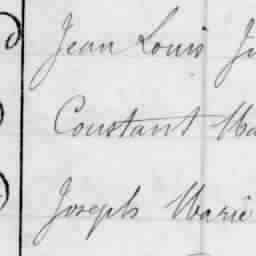 Jean Louis
Constant
Joseph Marie